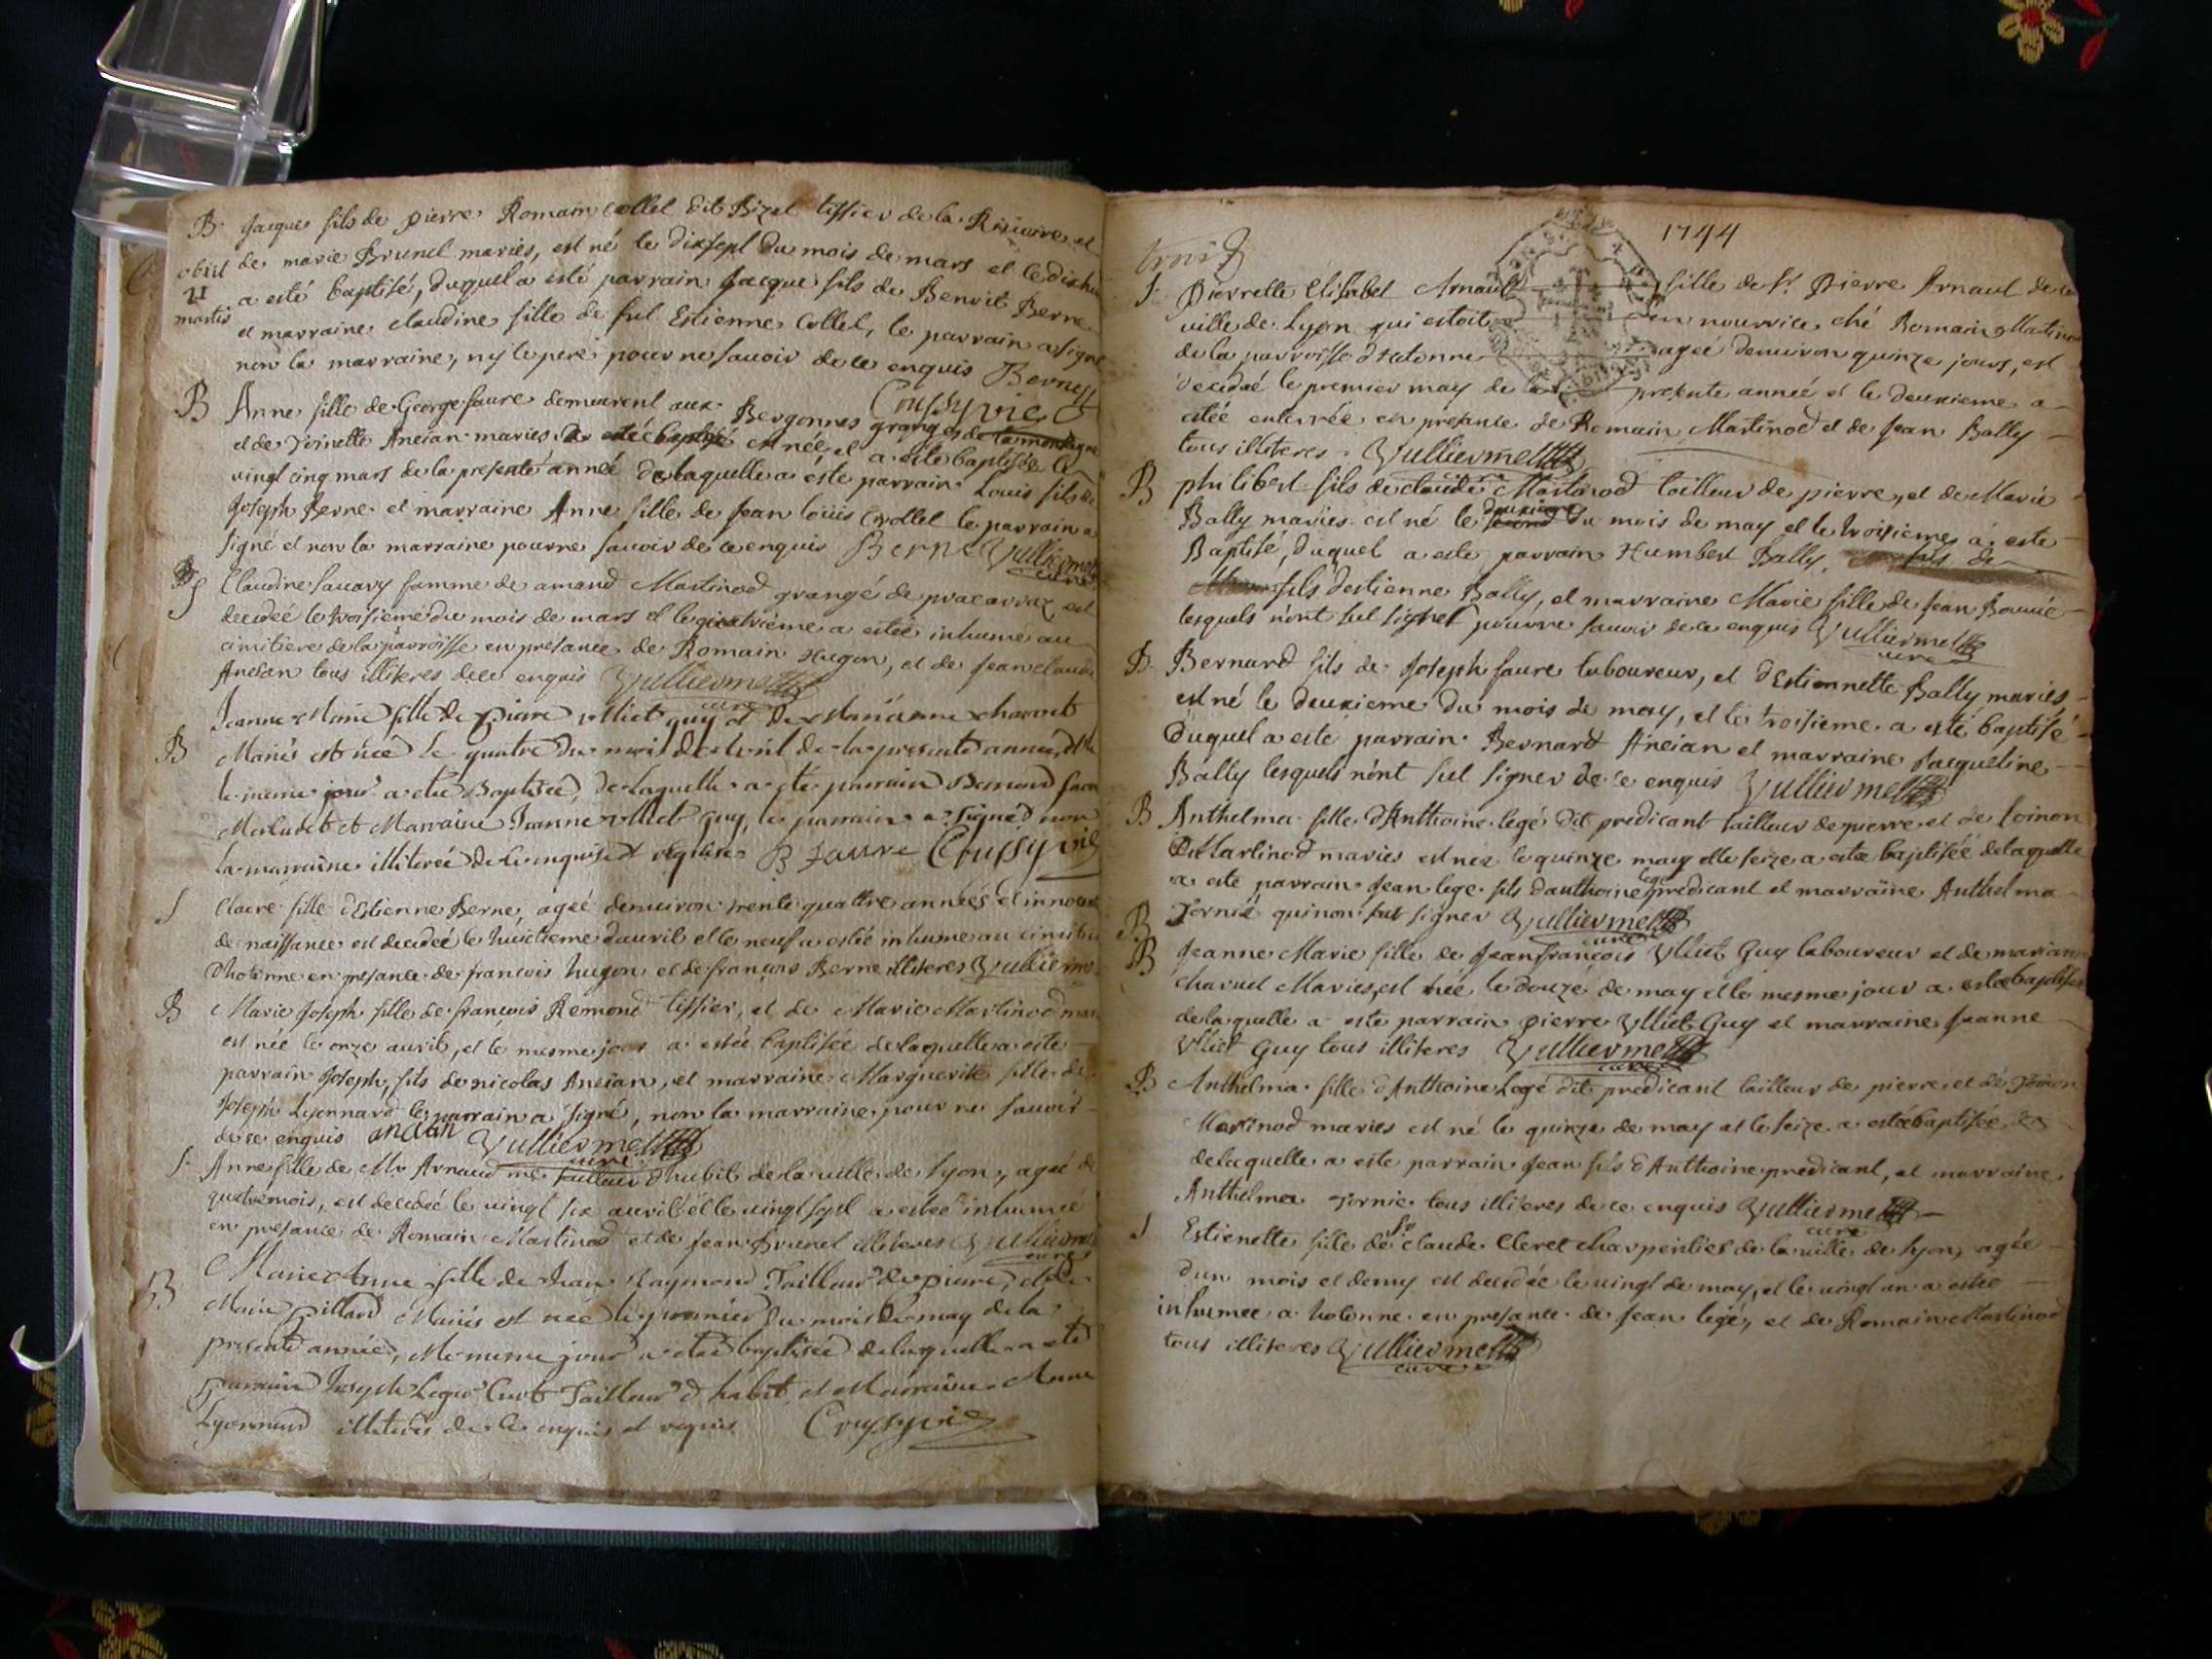 B Jacque fils de pierre Romain Collet dit Bizet tissier de la Riviere et
obiit de marie Brunel mariés, est né le dixsept du mois de mars et le dixhu
21 a esté baptisé, duquel a esté parrain Jacque fils de Benoit Berne
martis et marraine claudine fille de fut Estienne Collet, le parrain a signé
non la marraine, ny le pere pour ne savoir de ce enquis Berne
Croussy vic
B Anne fille de George faure demeurent aux Bergonnes granges de la montagne
et de Toinette Ancian mariés a esté baptisé est née, et a esté baptisée le
vingt cinq mars de la presente année de laquelle a éste parrain Louis fils de
Joseph Berne et marraine Anne fille de Jean Loüis Crollet le parrain a
signé et non la marraine pour ne savoir de ce enquis Berne Vulliermet
curé
S Claudine savary famme de amand Martinod grangé de pracarraz est
decedeé le troisieme du mois de mars et le quatrième a estée inhumé au
cimitiere de la parroisse en presance de Romain Hugon, et de Jean claude
Ancian tous illiteres de ce enquis Vulliermet
curé
Jeanne Marie fille de Pierre Vlliet guy et de Marianne charvet
B Mariés est née le quatre du mois de avril de la presente année, et le
le meme jour a eté Baptisée, de laquelle a eté parrain Bernard faure
Merluret et Marraine Jeanne Vlliet guy, le parrain a signé non
la marraine illiterée de ce enquise et requise B faure Croussy vic
S Claire fille d'Estienne Berne, agéé denviron trente quattre années et innocent
de naissance est decedeé le huictieme d'avril et le neuf a estée inhume au cimitie
d'hotonne en presance de francois hugon et de françois Berne illiteres Vulliermet
B Marie Joseph fille de francois Remond tissier, et de Marie Martinod mar
est née le onze avril, et le mesme jour a estée baptisée de laquelle a este
parrain Joseph, fils de nicolas Ancian, et marraine Marguerite fille de
Joseph Lyonnard le parrain a signé, non la marraine pour ne savoir
de ce enquis ancian Vulliermet
curé
S. Anne fille de Mr Arnaud me tailleur d'habit de la ville de Lyon, agée de
quatre mois, est decedeé le vingt six avril et le vingt sept a estée inhumeé
en presance de Romain Martinod et de Jean Brunel illiteres Vulliermet
curé
Marie Anne fille de Jean Raymond Tailleur de pierre, et de
B Marie Pillard Mariés est née le premier du mois de may de la
presente année, et le meme jour a eteé baptisée de laquelle a eté
parrain Joseph Tailleur d'habit, et Marraine Anne
Lyonnard illiterés de ce enquis et requis Croussy vic
1744
trois
S. Pierrette Elisabet Arnault fille de Sr. Pierre Arnaut de la
ville de Lyon qui estoit en nourrice ché Romain Martinod
de la parroisse d'Hotonne agéé denviron quinze jours, est
decedeé le premier may de la presente année et le deuxieme a
estée enterrée en présance de Romain Martinod et de Jean Bally
tous illiteres. Vulliermet
curé
B philibert fils de claude Martinod tailleur de pierre, et de Marie
deuxieme
Bally mariés est né le second du mois de may et le troisieme a este
Baptisé, duquel a este parrain Humbert Bally, fils de
fils d'estienne Bally, et marraine Marie fille de Jean Bonnié
lesquels n'ont sut signer pour ne savoir de ce enquis Vulliermet
curé
B. Bernard fils de Joseph faure laboureur, et d'Estiennette Bally mariés,
est né le deuxieme du mois de may, et le troisieme a esté baptisé
duquel a este parrain Bernard Ancian et marraine Jacqueline
Bally lesquels n'ont sut signer de ce enquis Vulliermet
B Anthelma fille d'Anthoine legé dit predicant tailleur de pierre et de toinon
Martinod mariés est née le quinze may et le seize a estée baptisée de laquelle
legé
a este parrain Jean lege fils d'anthoine predicant et marraine Anthelma
B Tornié qui non sut signer Vulliermet
curé
B Jeanne Marie fille de Jean françois Vlliet Guy laboureur et de marian
charvet Mariés, est née le douze de may et le mesme jour a estée baptisée
de laquelle a este parrain pierre Vlliet Guy et marraine Jeanne
Vlliet Guy tous illiteres Vulliermet
curé
B Anthelma fille d'Anthoine Legé dit predicant tailleur de pierre et de Toinon
Martinod mariés est né le quinze de may et le seize a estée baptisée
de laquelle a este parrain Jean fils d'Anthoine predicant, et marraine
Anthelma Tornie tous illiteres de ce enquis Vulliermet
curé
S Estienette fille de Sr claude Cleret charpentier de la ville de Lyon, agée
d'un mois et demy est decedée le vingt de may, et le vingt un a estée
inhumee a hotonne en presance de Jean legé, et de Romain Martinod
tous illiteres Vulliermet
curé